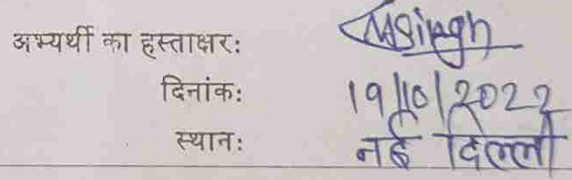 अभ्यर्थी का हस्ताक्षर: MSingh
दिनांक: 19/10/2022
स्थान: नई दिल्ली